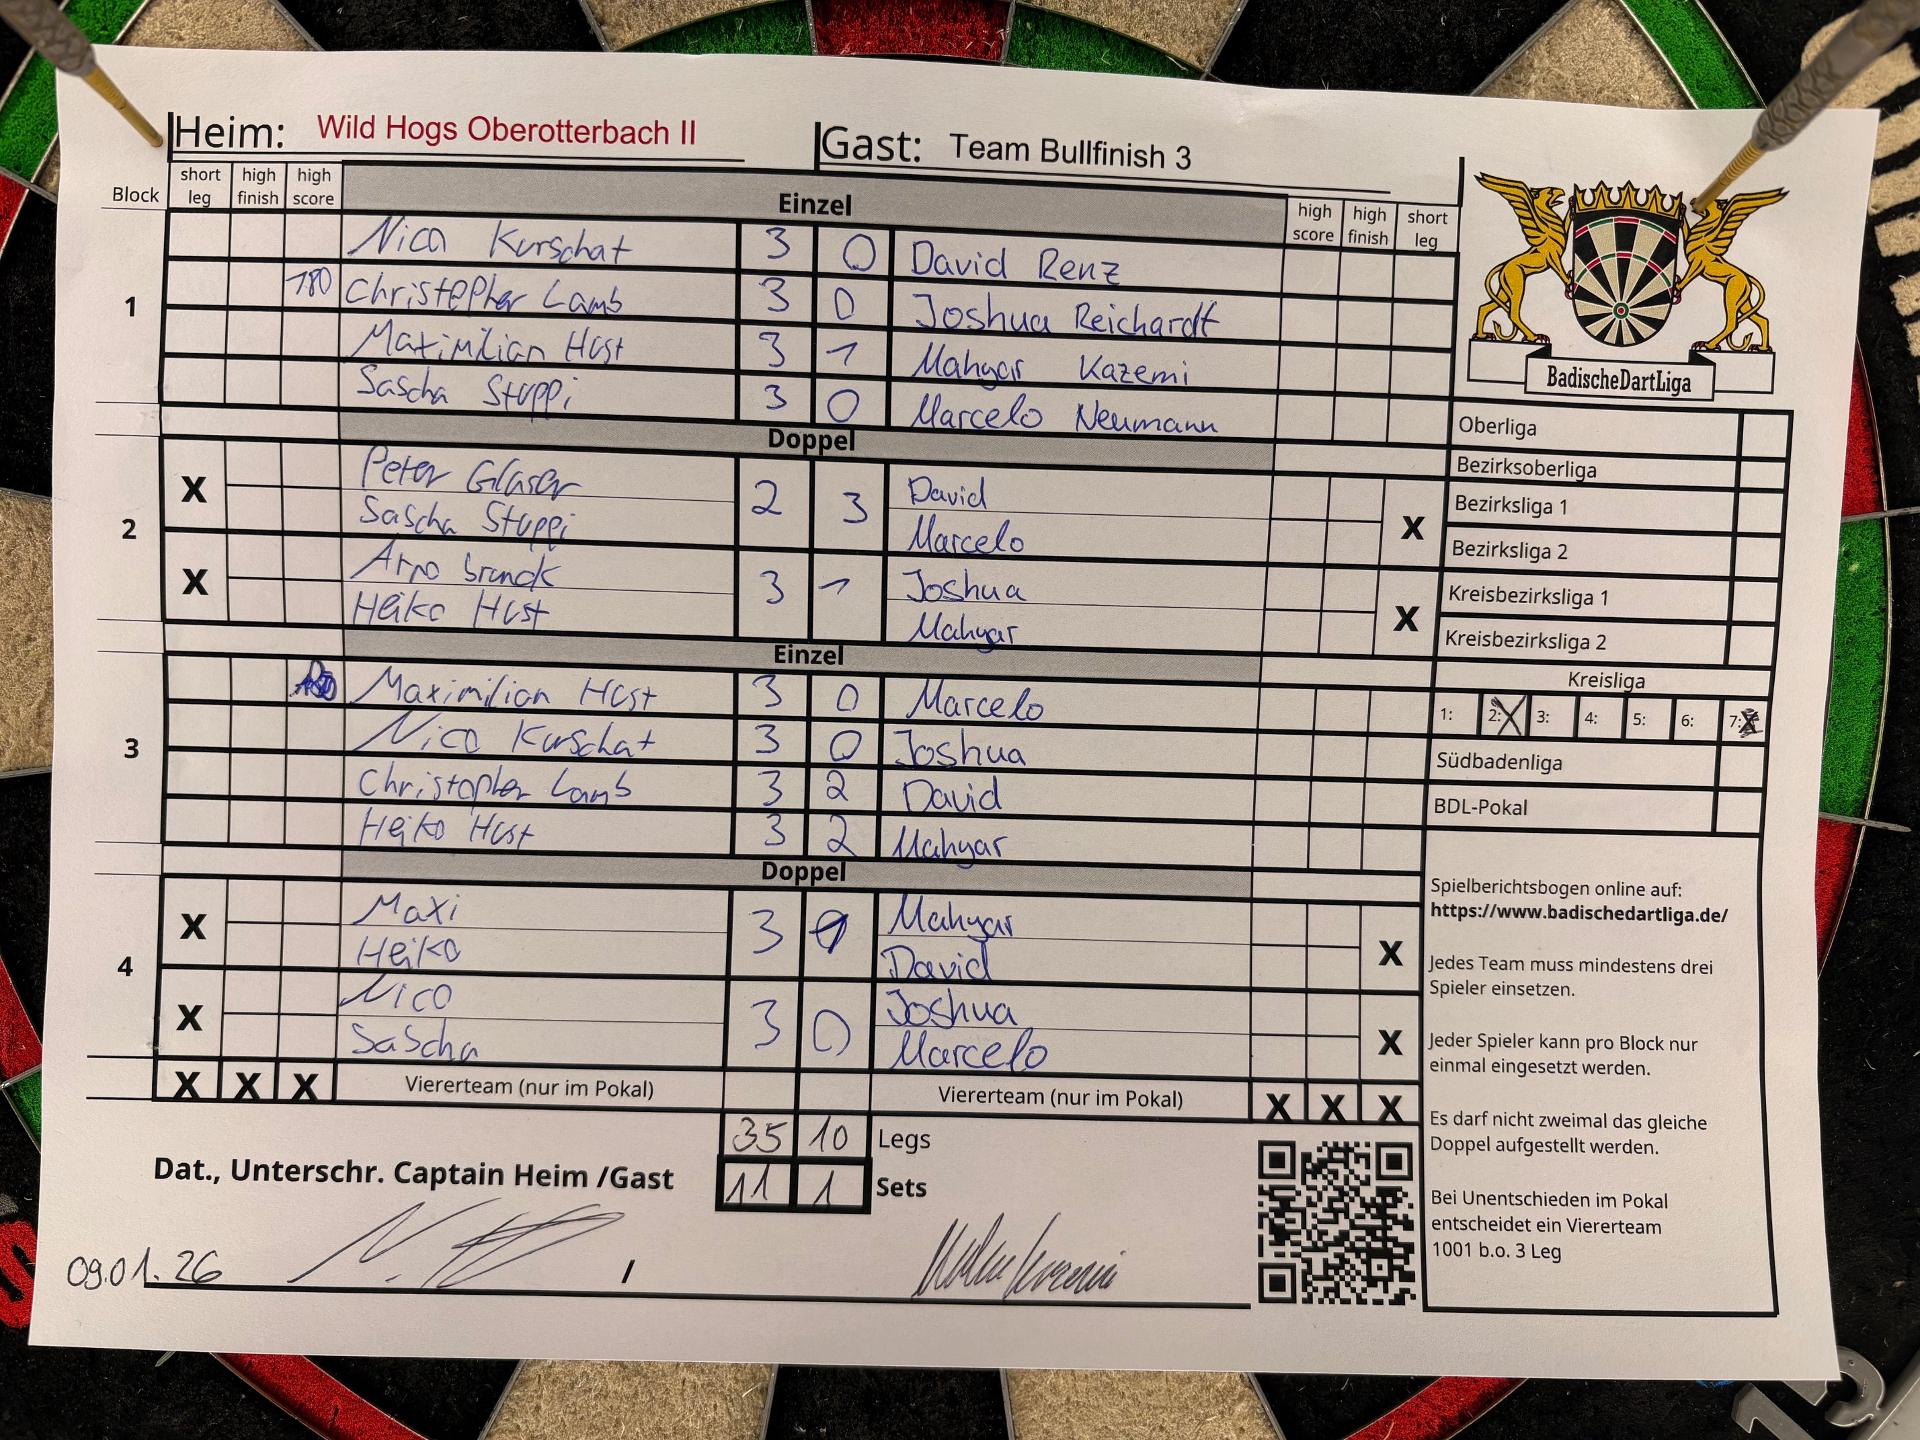 Heim: Wild Hogs Oberotterbach II Gast: Team Bullfinish 3
Block short leg high finish high score Einzel high score high finish short leg
1
Nico Kurschat 3 0 David Renz
180 Christopher Lamb 3 0 Joshua Reichardt
Maximilian Hust 3 1 Mahyar Kazemi
Sascha Stuppi 3 0 Marcelo Neumann
Doppel
2
X Peter Glaser 2 3 David X
Sascha Stuppi Marcelo
X Arno Brunck 3 1 Joshua X
Heiko Hust Mahyar
Einzel
3
Maximilian Hust 3 0 Marcelo
Nico Kurschat 3 0 Joshua
Christopher Lamb 3 2 David
Heiko Hust 3 2 Mahyar
Doppel
4
X Maxi 3 1 Mahyar X
Heiko David
X Nico 3 0 Joshua X
Sascha Marcelo
X X X Viererteam (nur im Pokal) Viererteam (nur im Pokal) X X X
35 10 Legs
11 1 Sets
Dat., Unterschr. Captain Heim /Gast
09.01.26 /
BadischeDartLiga
Oberliga
Bezirksoberliga
Bezirksliga 1
Bezirksliga 2
Kreisbezirksliga 1
Kreisbezirksliga 2
Kreisliga
1: 2: X 3: 4: 5: 6: 7:
Südbadenliga
BDL-Pokal
Spielberichtsbogen online auf:
https://www.badischedartliga.de/
Jedes Team muss mindestens drei
Spieler einsetzen.
Jeder Spieler kann pro Block nur
einmal eingesetzt werden.
Es darf nicht zweimal das gleiche
Doppel aufgestellt werden.
Bei Unentschieden im Pokal
entscheidet ein Viererteam
1001 b.o. 3 Leg
12